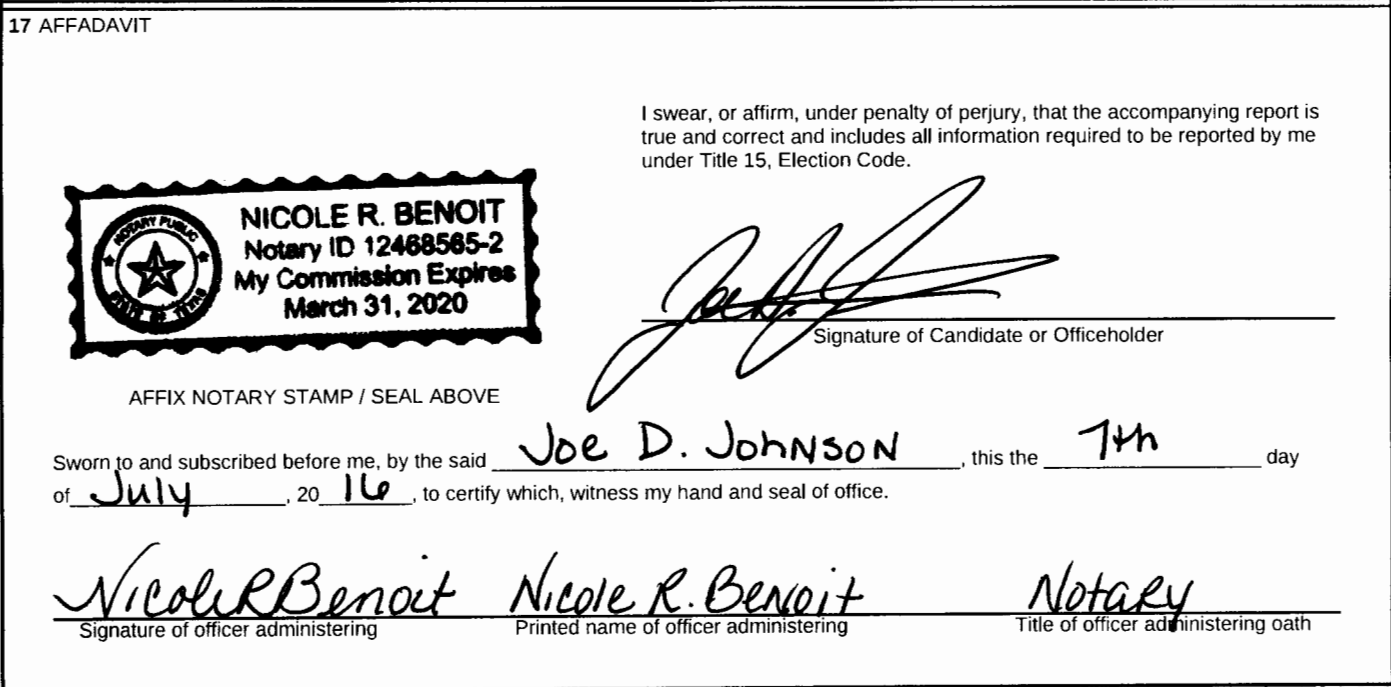 17 AFFADAVIT
I swear, or affirm, under penalty of perjury, that the accompanying report is
true and correct and includes all information required to be reported by me
under Title 15, Election Code.
NOTARY PUBLIC
STATE OF TEXAS
NICOLE R. BENOIT
Notary ID 12468565-2
My Commission Expires
March 31, 2020
Signature of Candidate or Officeholder
AFFIX NOTARY STAMP / SEAL ABOVE
Sworn to and subscribed before me, by the said Joe D. Johnson, this the 7th day
of July, 20 16, to certify which, witness my hand and seal of office.
Nicole R Benoit Nicole R. Benoit Notary
Signature of officer administering Printed name of officer administering Title of officer administering oath